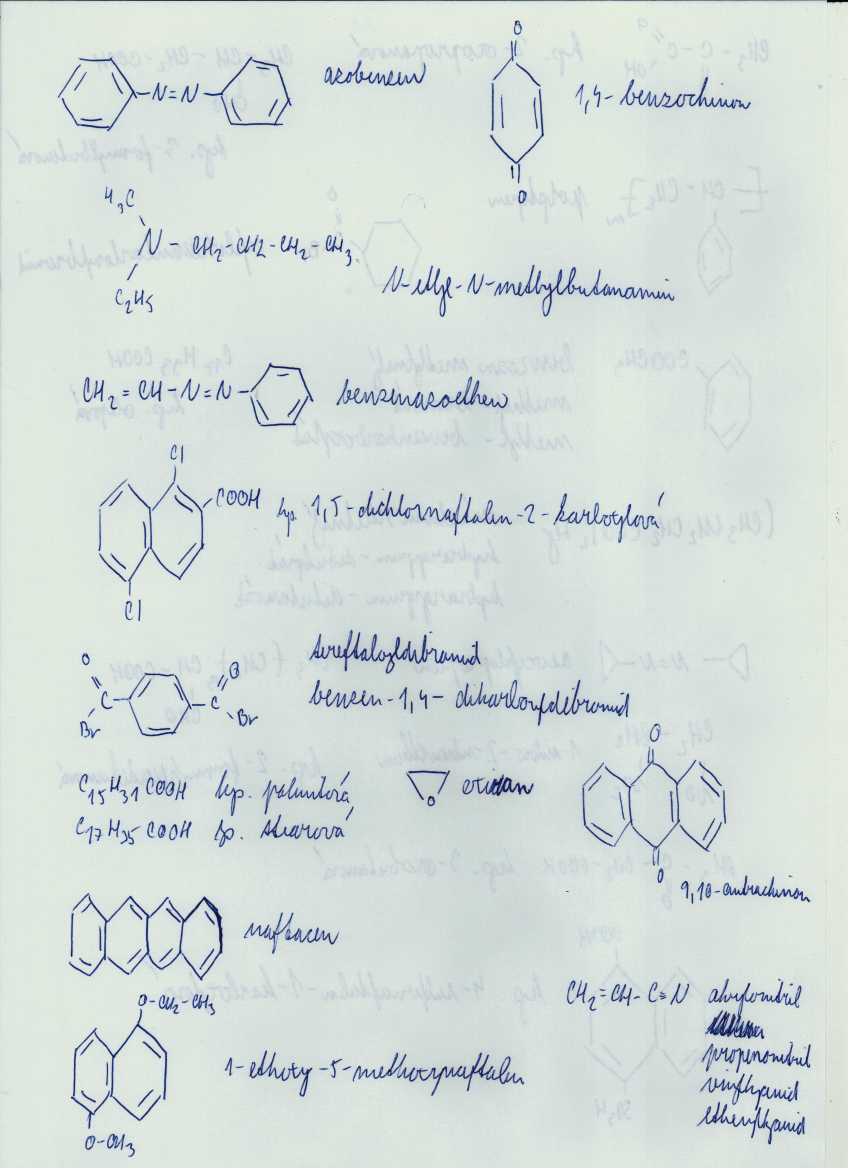 -N=N-
azobenzen
O
1,4-benzochinon
O
H₃C
N-CH₂-CH2-CH₂-CH₃
C₂H₅
N-ethyl-N-methylbutanamin
CH₂=CH-N=N-
benzenazoethen
Cl
COOH
kys. 1,5-dichlornaftalen-2-karboxylová
Cl
tereftaloyldibromid
benzen-1,4-dikarbonyldibromid
O
C
Br
O
C
Br
C₁₅H₃₁COOH kys. palmitová
C₁₇H₃₅COOH k. stearová
O
oxiran
O
O
9,10-antrachinon
naftacen
O-CH₂-CH₃
1-ethoxy-5-methoxynaftalen
O-CH₃
CH₂=CH-C≡N akrylonitril
propenonitril
vinylkyanid
ethenylkyanid